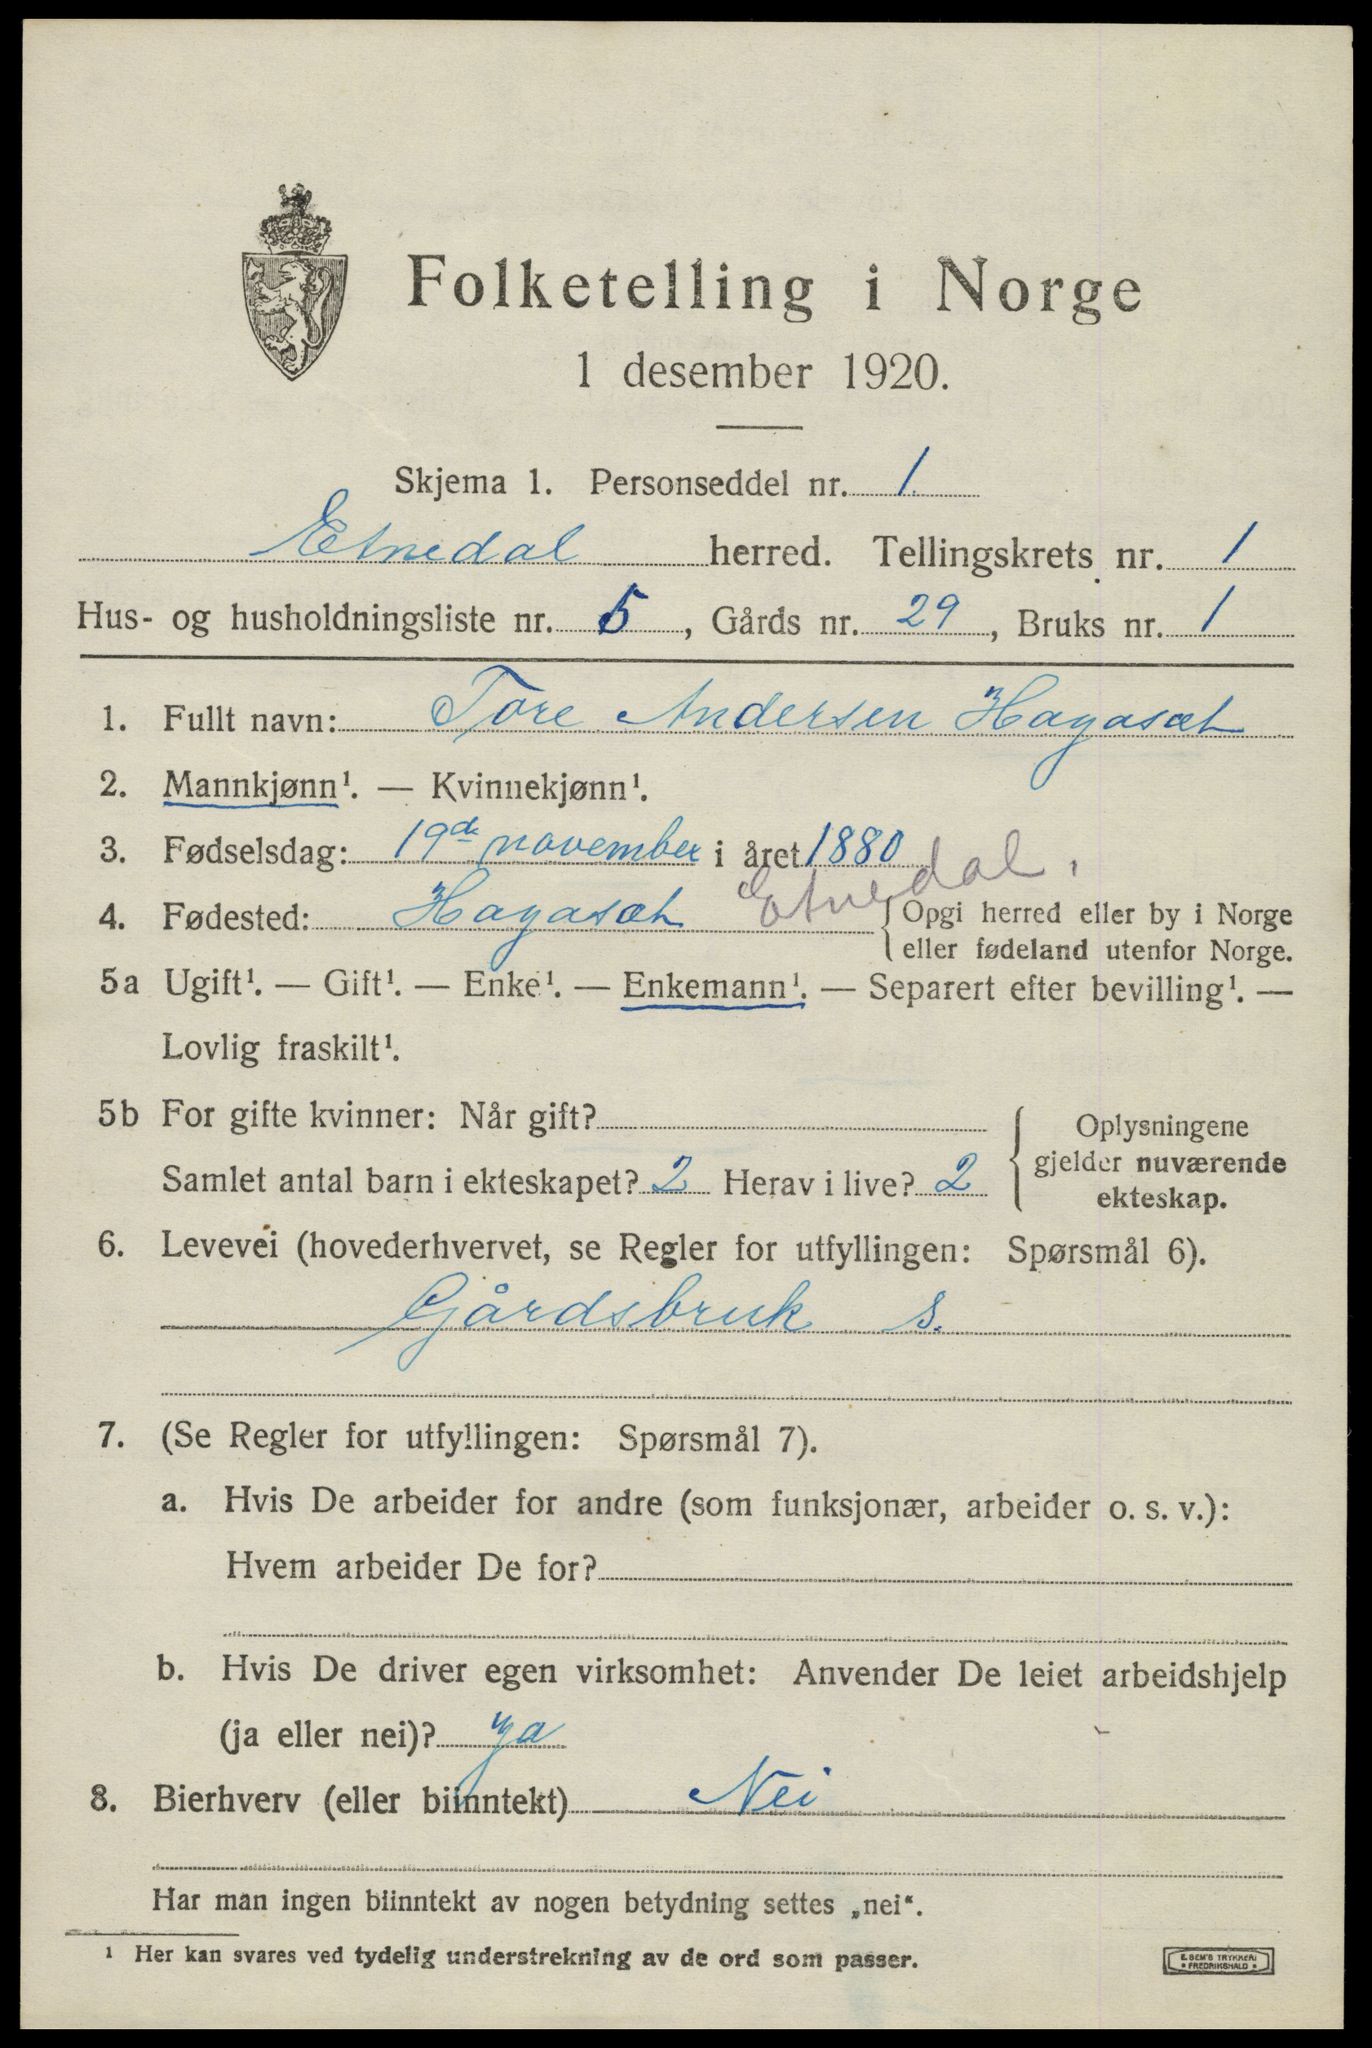 Folketelling i Norge
1 desember 1920.
Skjema 1. Personseddel nr. 1.
Etnedal herred. Tellingskrets nr. 1
Hus- og husholdningsliste nr. 5, Gårds nr. 29, Bruks nr. 1
1. Fullt navn: Tore Andersen Hagasæt
2. Mannkjønn¹. — Kvinnekjønn¹.
3. Fødselsdag: 19de november i året 1880
4. Fødested: Hagasæt Etnedal. Opgi herred eller by i Norge
eller fødeland utenfor Norge.
5a Ugift¹. — Gift¹. — Enke¹. — Enkemann¹. — Separert efter bevilling¹. —
Lovlig fraskilt¹.
5b For gifte kvinner: Når gift?
Samlet antal barn i ekteskapet? 2 Herav i live? 2
Oplysningene
gjelder nuværende
ekteskap.
6. Levevei (hovederhvervet, se Regler for utfyllingen: Spørsmål 6).
Gårdsbruk s.
7. (Se Regler for utfyllingen: Spørsmål 7).
a. Hvis De arbeider for andre (som funksjonær, arbeider o. s. v.):
Hvem arbeider De for?
b. Hvis De driver egen virksomhet: Anvender De leiet arbeidshjelp
(ja eller nei)? ja
8. Bierhverv (eller biinntekt) Nei
Har man ingen biinntekt av nogen betydning settes „nei“.
¹ Her kan svares ved tydelig understrekning av de ord som passer.
E. SEM'S TRYKKERI
• FREDRIKSHALD •